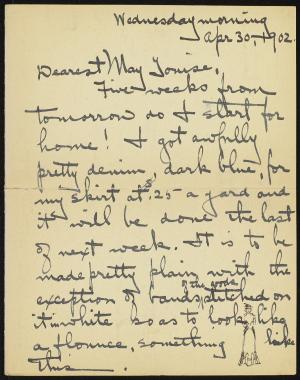 Wednesday morning
Apr 30, 1902.
Dearest May Louise,
Five weeks from
tomorrow do I start for
home! I got awfully
pretty denim, dark blue, for
my skirt at $.25 a yard and
it will be done the last
of next week. It is to be
made pretty plain, with the
of the goods
exception of bands, stitched on
it in white so as to look like
a flounce, something like
this.